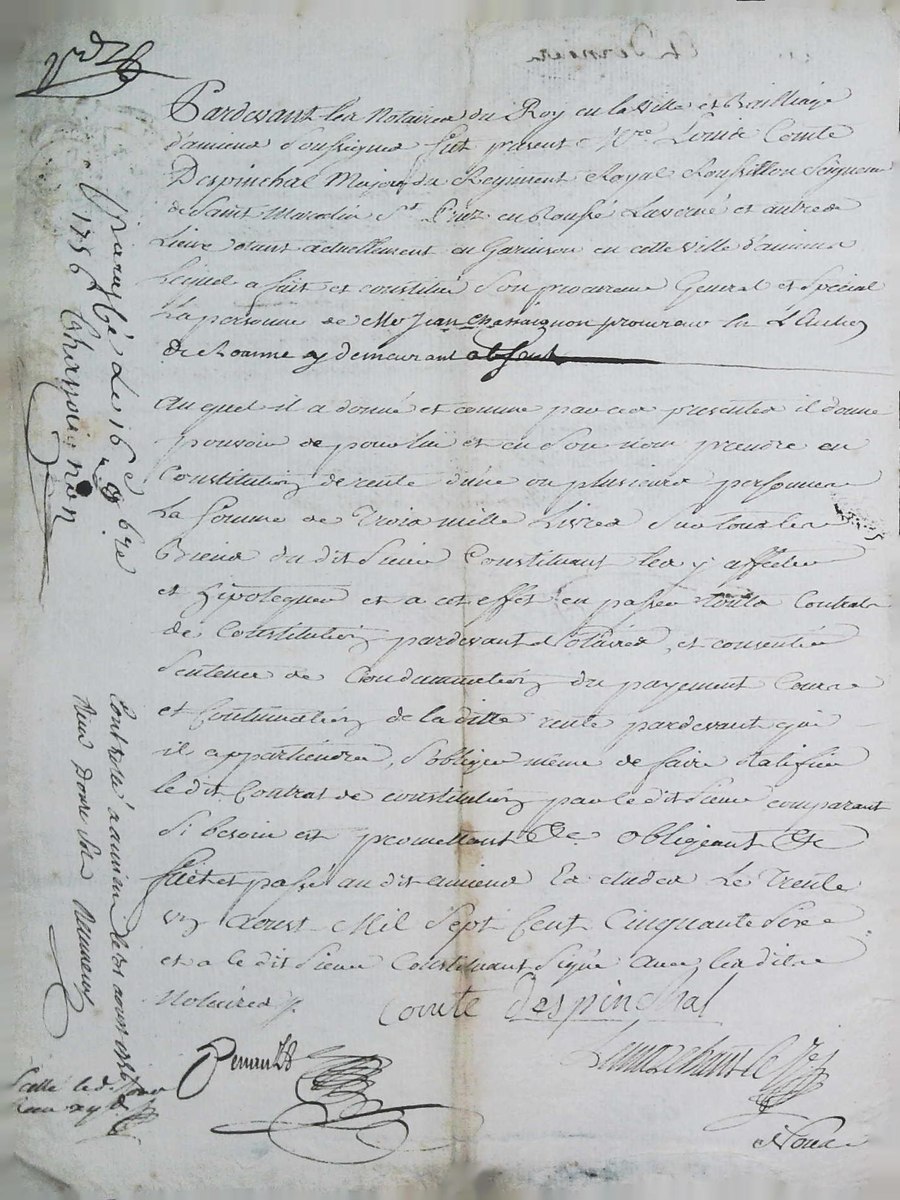 Pardevant les Notaires du Roy en la Ville et Bailliage
d'amiens Soussignés fut present Mre Louis Comte
Despinchal Major du Regiment Royal Roussillon Seigneur
de Saint Marcelin St Priez en Roussé Laverné et autres
Lieux étant actuellement en Garnison en cette Ville d'amiens
Lequel a fait et constitué Son procureur General et Spécial
La personne de Me Jean Chassaignon procureur
de Roanne y demeurant absent
Auquel il a donné et comme par ces presentes il donne
pouvoir de pour lui et en Son nom prendre en
Constitution de rente d'une ou plusieurs personnes
La Somme de Trois mille Livres Sur tous les
Biens du dit Sieur Constituant les y affecter
et hipotequer et a cet effet en passer touts Contrats
de Constitution pardevant Notaires, et consentir
Sentence de Condamnation du payement Cours
et Continuation de la ditte rente pardevant qui
il appartiendra, S'obliger même de faire Ratifier
le dit Contrat de constitution par le dit Sieur comparant
Si besoin est promettant &c. obligeant &c
fait et passé au dit Amiens Es Etudes Le Trente
un Aoust Mil Sept Cent Cinquante Six
et a le dit Sieur Constituant Signé avec les dits
Notaires
Comte Despinchal
Nous
Paraphé le 16e 9bre
1756 Chassoignon
Controllé a amiens le 31 aoust 1756
Reçu Douze Sols
Scellé le d. jour